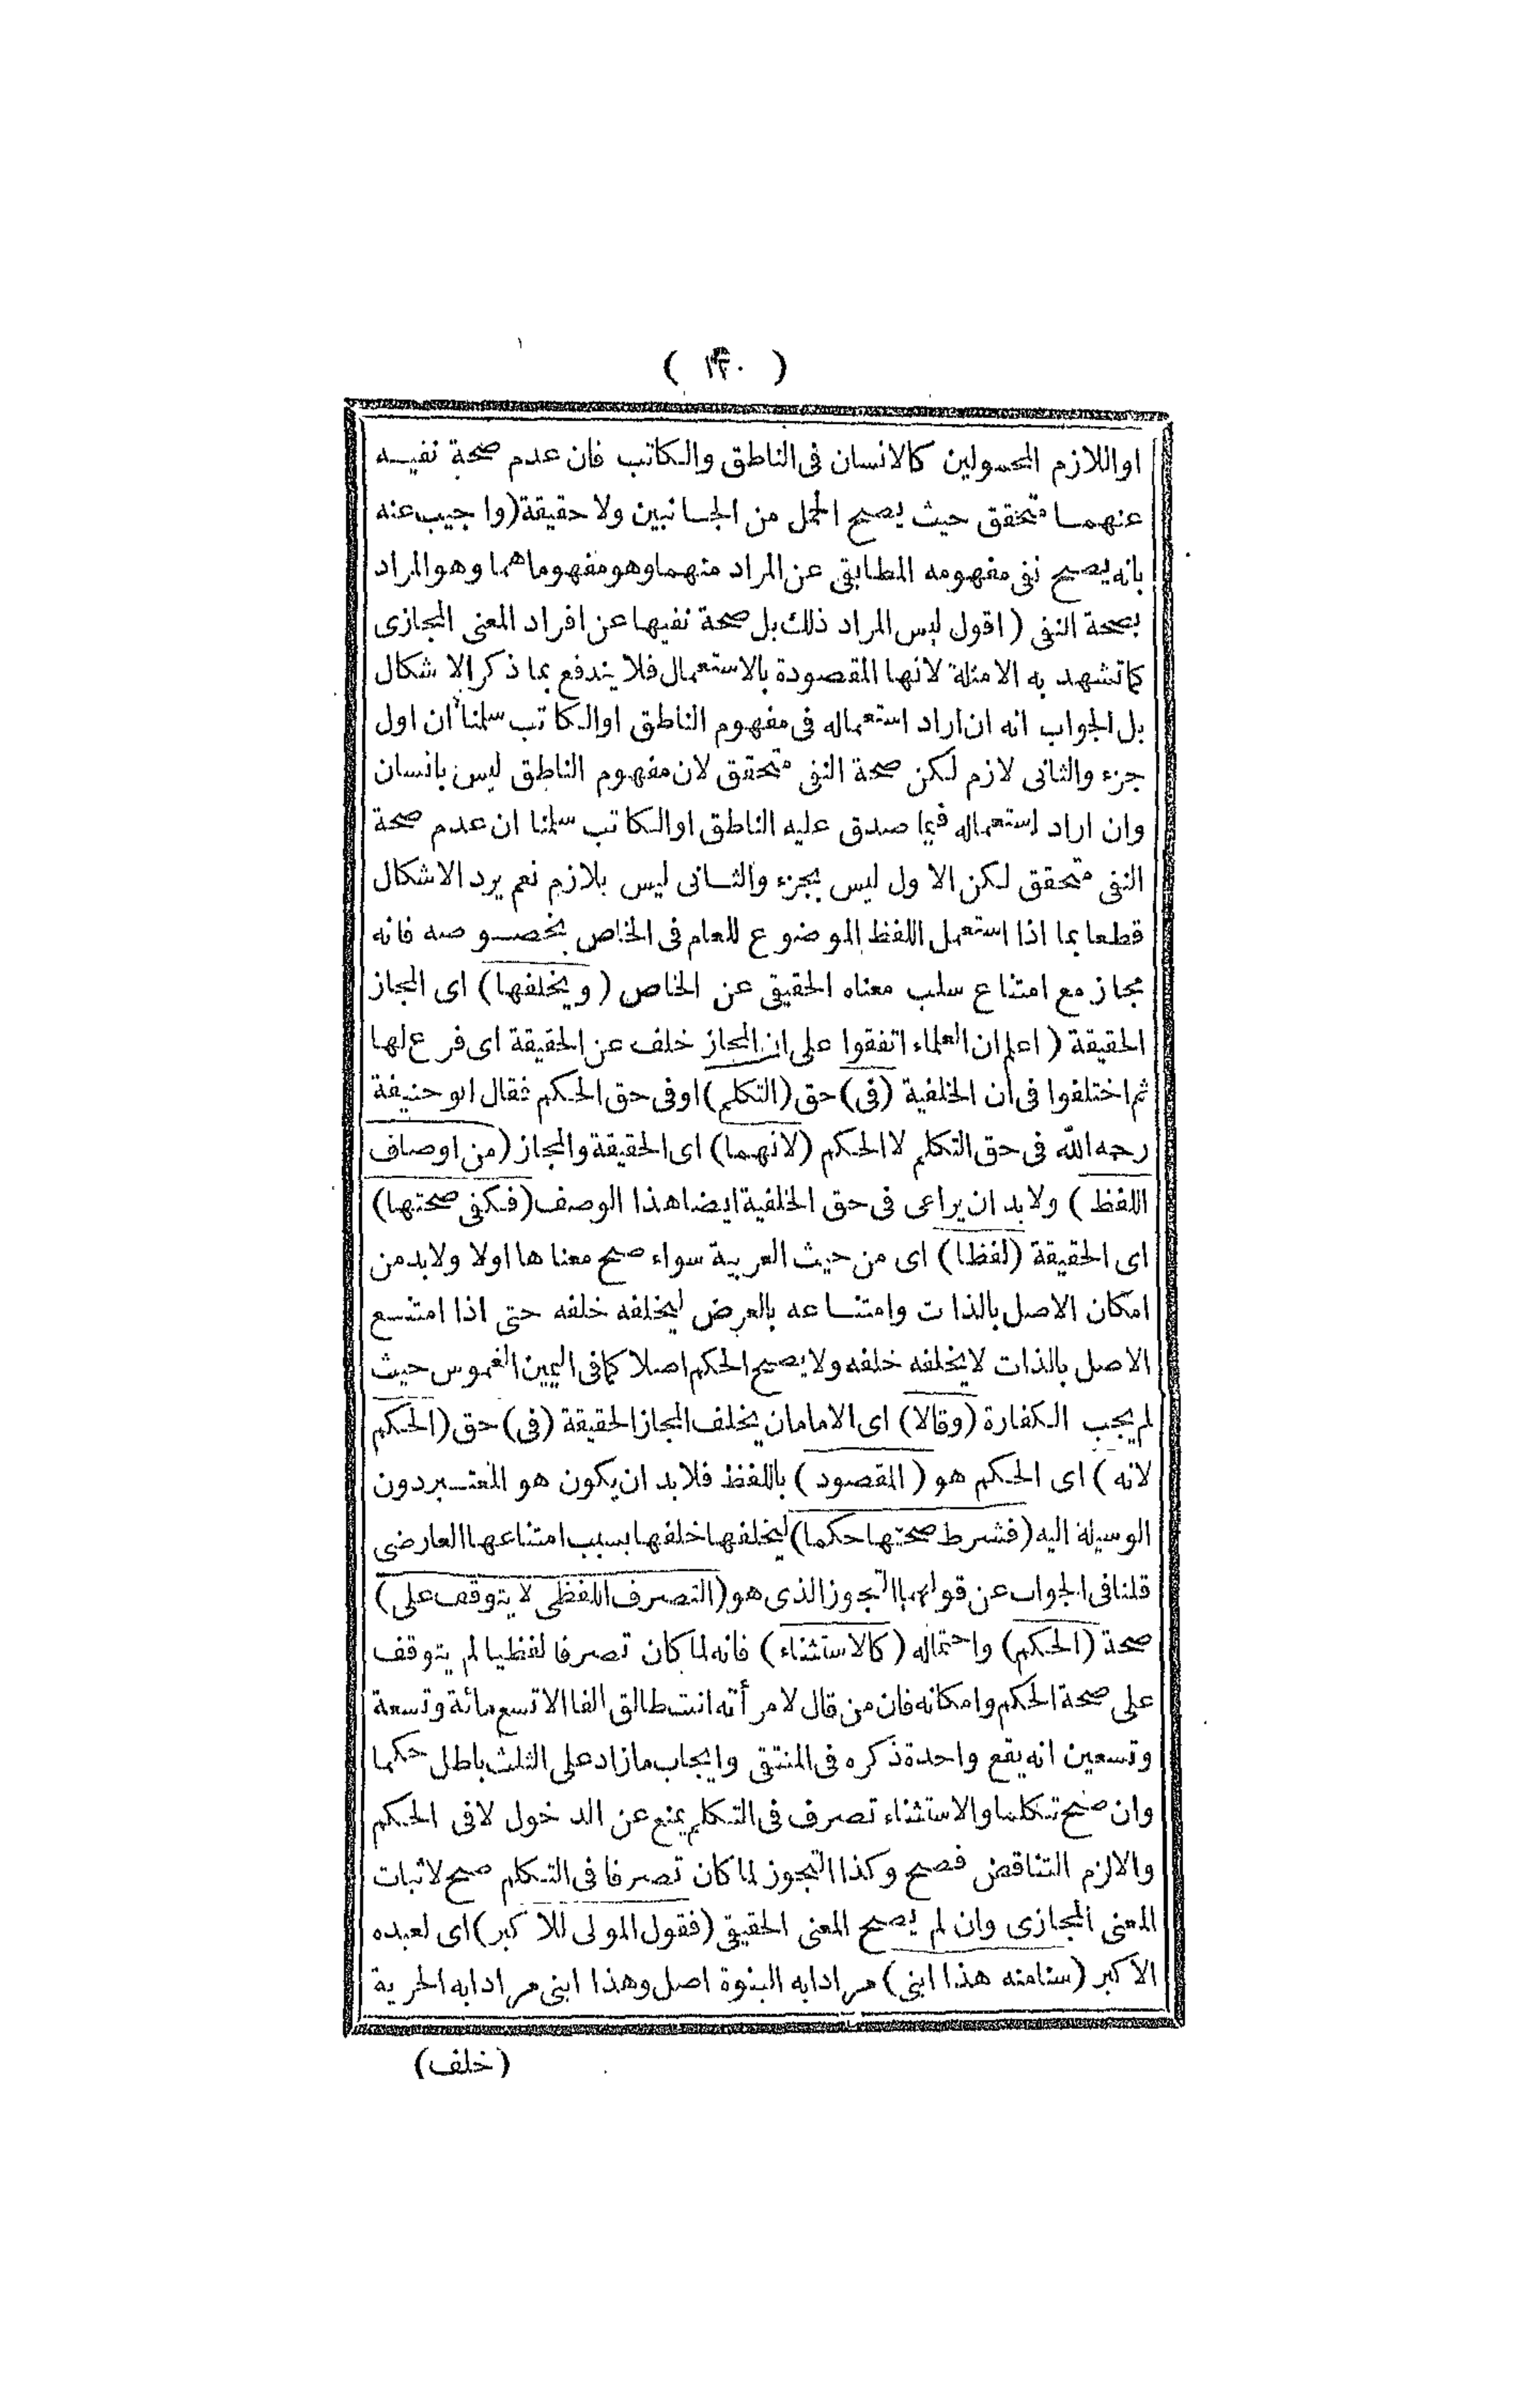 ( ١٤٠ )
او اللازم المحمولين كالانسان فى الناطق والكاتب فان عدم صحة نفيه
عنهما متحقق حيث يصح الحمل من الجانبين ولا حقيقة (واجيب عنه
بانه يصح نفى مفهومه المطابقى عن المراد منهما وهو مفهوماهما وهو المراد
بصحة النفى (اقول ليس المراد ذلك بل صحة نفيها عن افراد المعنى المجازى
كما تشهد به الامثلة لانها المقصودة بالاستعمال فلا يندفع بما ذكر الاشكال
بل الجواب انه ان اراد استعماله فى مفهوم الناطق او الكاتب سلمنا ان اول
جزء والثانى لازم لكن صحة النفى متحقق لان مفهوم الناطق ليس بانسان
وان اراد استعماله فيما صدق عليه الناطق او الكاتب سلمنا ان عدم صحة
النفى متحقق لكن الاول ليس بجزء والثانى ليس بلازم نعم يرد الاشكال
قطعا بما اذا استعمل اللفظ الموضوع للعام فى الخاص بخصوصه فانه
مجاز مع امتناع سلب معناه الحقيقى عن الخاص (ويخلفها) اى المجاز
الحقيقة (اعلم ان العلماء اتفقوا على ان المجاز خلف عن الحقيقة اى فرع لها
ثم اختلفوا فى ان الخلفية (فى) حق (التكلم) او فى حق الحكم فقال ابو حنيفة
رحمه الله فى حق التكلم لا الحكم (لانهما) اى الحقيقة والمجاز (من اوصاف
اللفظ) ولابد ان يراعى فى حق الخلفية ايضا هذا الوصف (فكفى صحتها)
اى الحقيقة (لفظا) اى من حيث العربية سواء صح معناها اولا ولابد من
امكان الاصل بالذات وامتناعه بالعرض ليخلفه خلفه حتى اذا امتنع
الاصل بالذات لا يخلفه خلفه ولا يصح الحكم اصلا كما فى اليمين الغموس حيث
لم يجب الكفارة (وقالا) اى الامامان يخلف المجاز الحقيقة (فى) حق (الحكم
لانه) اى الحكم هو (المقصود) باللفظ فلابد ان يكون هو المعتبر دون
الوسيلة اليه (فشرط صحتها حكما) ليخلفها خلفها بسبب امتناعها العارضى
قلنا فى الجواب عن قولهما التجوز الذى هو (التصرف اللفظى لا يتوقف على)
صحة (الحكم) واحتماله (كالاستثناء) فانه لما كان تصرفا لفظيا لم يتوقف
على صحة الحكم وامكانه فان من قال لامرأته انت طالق الفا الا تسع مائة وتسعة
وتسعين انه يقع واحدة ذكره فى المنتقى وايجاب ما زاد على الثلث باطل حكما
وان صح تكلما والاستثناء تصرف فى التكلم يمنع عن الدخول لا فى الحكم
والا لزم التناقض فصح وكذا التجوز لما كان تصرفا فى التكلم صح لاثبات
المعنى المجازى وان لم يصح المعنى الحقيقى (فقول المولى للاكبر) اى لعبده
الاكبر (سنا منه هذا ابنى) مرادا به البنوة اصل وهذا ابنى مرادا به الحرية
(خلف)